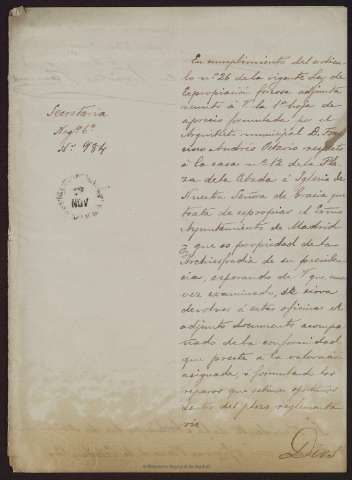 En cumplimiento del articu-
lo nº 26 de la vigente Ley de
Expropiación forzosa adjunta
remito á V. la 1ª hoja de
aprecio formulada por el
Arquitecto municipal D. Fran
cisco Andrés Octavio respecto
á la casa nº 12 de la Pla
za de la Cebada é Iglesia de
Nuestra Señora de Gracia que
trata de expropiar el Excmo
Ayuntamiento de Madrid
y que es propiedad de la
Archicofradia de su presiden
cia, esperando de V. que una
vez examinado, se sirva
devolver á estas oficinas el
adjunto documento acompa
ñado de la conformidad
que preste á la valoración
asignada, ó formulando los
reparos que estime oportunos
dentro del plazo reglamenta
rio
Dios
Secretaria
Negº 6º
Nº 984
NOV